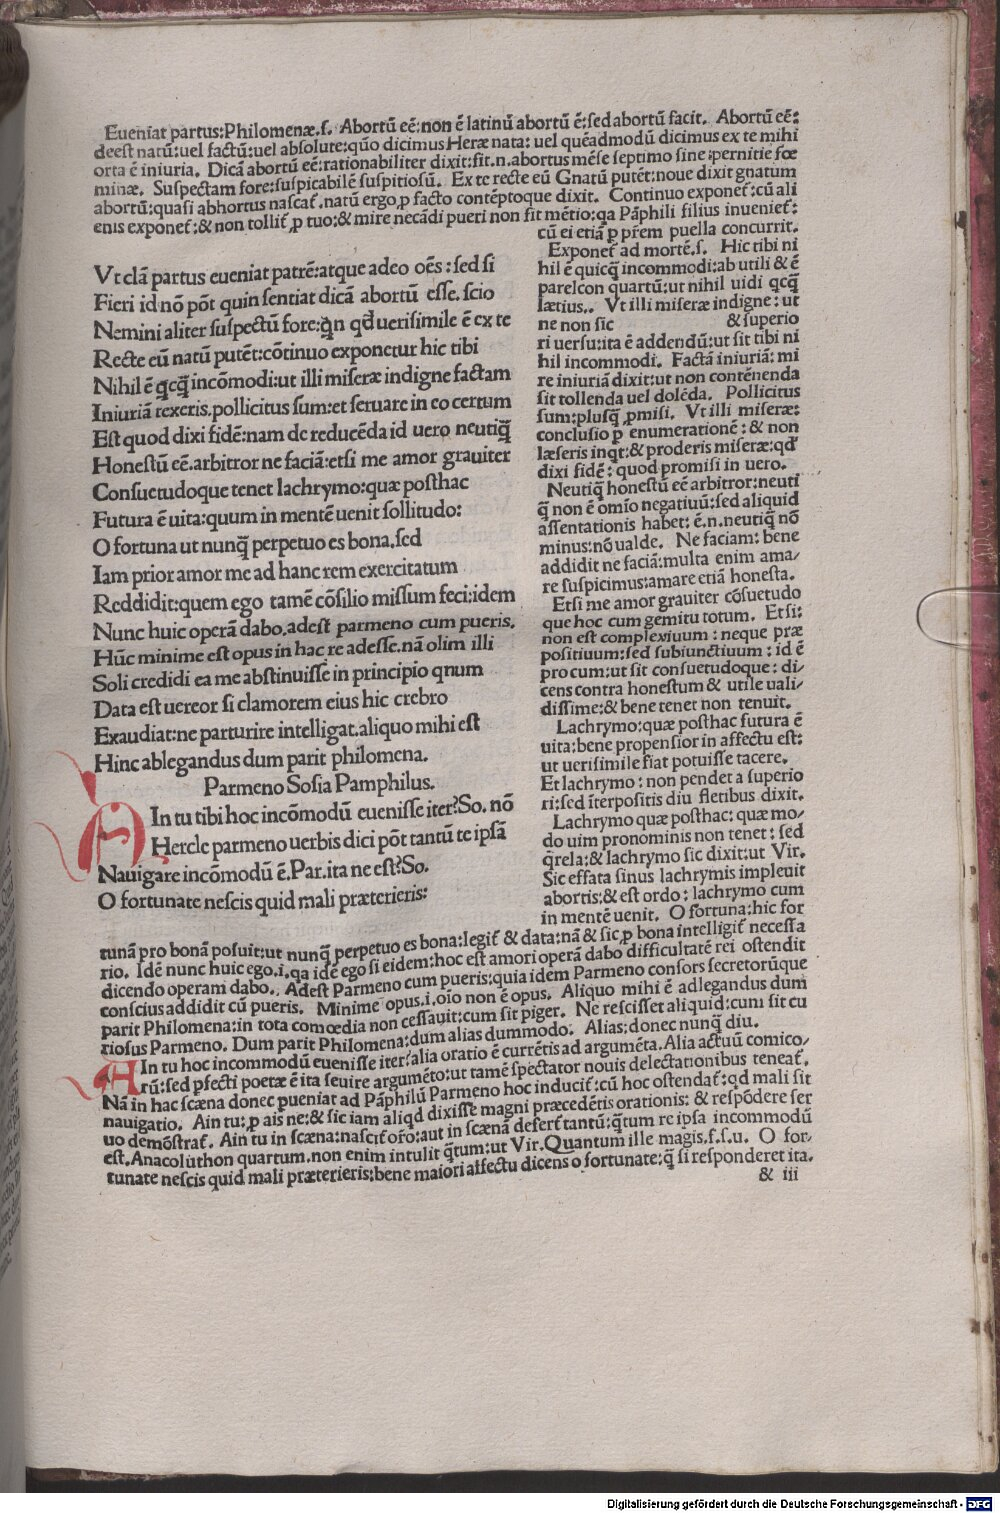 Eueniat partus:Philomenæ.ſ. Abortū eē:non ē latinū abortū ē:ſed abortū facit. Abortū eē:
deeſt natū:uel factū:uel abſolute:quō dicimus Heræ nata: uel quēadmodū dicimus ex te mihi
orta ē iniuria. Dicā abortū eē:rationabiliter dixit:ſit.n.abortus mēſe ſeptimo ſine pernitie fœ
minæ. Suſpectam fore:ſuſpicabilē ſuſpitioſū. Ex te recte eū Gnatū putēt:noue dixit gnatum
abortū:quaſi abhortus naſcat̄.natū ergo ꝓ facto contēptoque dixit. Continuo exponet̄:cū ali
enis exponet̄:& non tollit̄ ꝓ tuo:& mire necādi pueri non fit mētio:qa Pāphili filius inueniet̄:
cū ei etiā ꝓ pr̄em puella concurrit.
Vt clā partus eueniat patrē:atque adeo oēs:ſed ſi
Fieri id nō pōt quin ſentiat dicā abortū eſſe.ſcio
Nemini aliter ſuſpectū fore:q̄n qd̄ ueriſimile ē ex te
Recte eū natū putēt:cōtinuo exponetur hic tibi
Nihil ē qcq̄ incōmodi:ut illi miſeræ indigne factam
Iniuriā texeris.pollicitus ſum:et ſeruare in eo certum
Eſt quod dixi fidē:nam de reducēda id uero neutiq̄
Honeſtū eē.arbitror ne faciā:etſi me amor grauiter
Conſuetudoque tenet lachrymo:quæ poſthac
Futura ē uita:quum in mentē uenit ſollitudo:
O fortuna ut nunq̄ perpetuo es bona.ſed
Iam prior amor me ad hanc rem exercitatum
Reddidit:quem ego tamē cōſilio miſſum feci:idem
Nunc huic operā dabo.adeſt parmeno cum pueris.
Hūc minime eſt opus in hac re adeſſe.nā olim illi
Soli credidi ea me abſtinuiſſe in principio qnum
Data eſt uereor ſi clamorem eius hic crebro
Exaudiat:ne parturire intelligat.aliquo mihi eſt
Hinc ablegandus dum parit philomena.
Parmeno Soſia Pamphilus.
AIn tu tibi hoc incōmodū eueniſſe iter?So. nō
Hercle parmeno uerbis dici pōt tantū te ipſā
Nauigare incōmodū ē.Par.ita ne eſt?So.
O fortunate neſcis quid mali præterieris:
Exponet̄ ad mortē.ſ. Hic tibi ni
hil ē quicq̄ incommodi:ab utili & ē
parelcon quartū:ut nihil uidi qcq̄
lætius.. Vt illi miſeræ indigne: ut
ne non ſic & ſuperio
ri uerſu:ita ē addendū:ut ſit tibi ni
hil incommodi. Factā iniuriā: mi
re iniuriā dixit:ut non contēnenda
ſit tollenda uel dolēda. Pollicitus
ſum:pluſq̄ ꝓmiſi. Vt illi miſeræ:
concluſio ꝓ enumerationē: & non
læſeris inqt:& proderis miſeræ:qd̄
dixi fidē: quod promiſi in uero.
Neutiq̄ honeſtū eē arbitror:neuti
q̄ non ē omīo negatiuū:ſed aliquid
aſſentationis habet: ē.n.neutiq̄ nō
minus:nō ualde. Ne faciam: bene
addidit ne faciā:multa enim ama/
re ſuſpicimus:amare etiā honeſta.
Etſi me amor grauiter cōſuetudo
que hoc cum gemitu totum. Etſi:
non eſt complexiuum: neque præ
poſitiuum:ſed ſubiunctiuum: id ē
pro cum:ut ſit conſuetudoque: di/
cens contra honeſtum & utile uali/
diſſime:& bene tenet non tenuit.
Lachrymo:quæ poſthac futura ē
uita:bene propenſior in affectu eſt:
ut ueriſimile fiat potuiſſe tacere.
Et lachrymo: non pendet a ſuperio
ri:ſed īterpoſitis diu fletibus dixit.
Lachrymo quæ poſthac: quæ mo/
do uim pronominis non tenet: ſed
q̄rela:& lachrymo ſic dixit:ut Vir.
Sic effata ſinus lachrymis impleuit
abortis:& eſt ordo: lachrymo cum
in mentē uenit. O fortuna:hic for
tunā pro bonā poſuit:ut nunq̄ perpetuo es bona:legit̄ & data:nā & ſic ꝓ bona intelligit̄ neceſſa
rio. Idē nunc huic ego.i.qa idē ego ſi eidem:hoc eſt amori operā dabo difficultatē rei oſtendit
dicendo operam dabo. Adeſt Parmeno cum pueris:quia idem Parmeno conſors ſecretorūque
conſcius addidit cū pueris. Minime opus.i.oīo non ē opus. Aliquo mihi ē adlegandus dum
parit Philomena:in tota comœdia non ceſſauit:cum ſit piger. Ne reſciſſet aliquid:cum ſit cu
rioſus Parmeno. Dum parit Philomena:dum alias dummodo. Alias:donec nunq̄ diu.
AIn tu hoc incommodū eueniſſe iter?alia oratio ē currētis ad argumēta.Alia actuū comico/
rū:ſed ꝑfecti poetæ ē ita ſeuire argumēto:ut tamē ſpectator nouis delectationibus teneat̄.
Nā in hac ſcæna donec pueniat ad Pāphilū Parmeno hoc inducit̄:cū hoc oſtendat̄:qd mali ſit
nauigatio. Ain tu: ꝓ ais ne:& ſic iam aliqd dixiſſe magni præcedētis orationis: & reſpōdere ſer
uo demōſtrat̄. Ain tu in ſcæna:naſcit̄ or̄o:aut in ſcænā defert̄ tantū:q̄tum re ipſa incommodū
eſt.Anacoluthon quartum.non enim intulit q̄tum:ut Vir.Quantum ille magis.ſ.ſ.u. O for/
tunate neſcis quid mali præterieris:bene maiori affectu dicens o fortunate:q̄ ſi reſponderet ita.
& iii
Digitalisierung gefördert durch die Deutsche Forschungsgemeinschaft - DFG